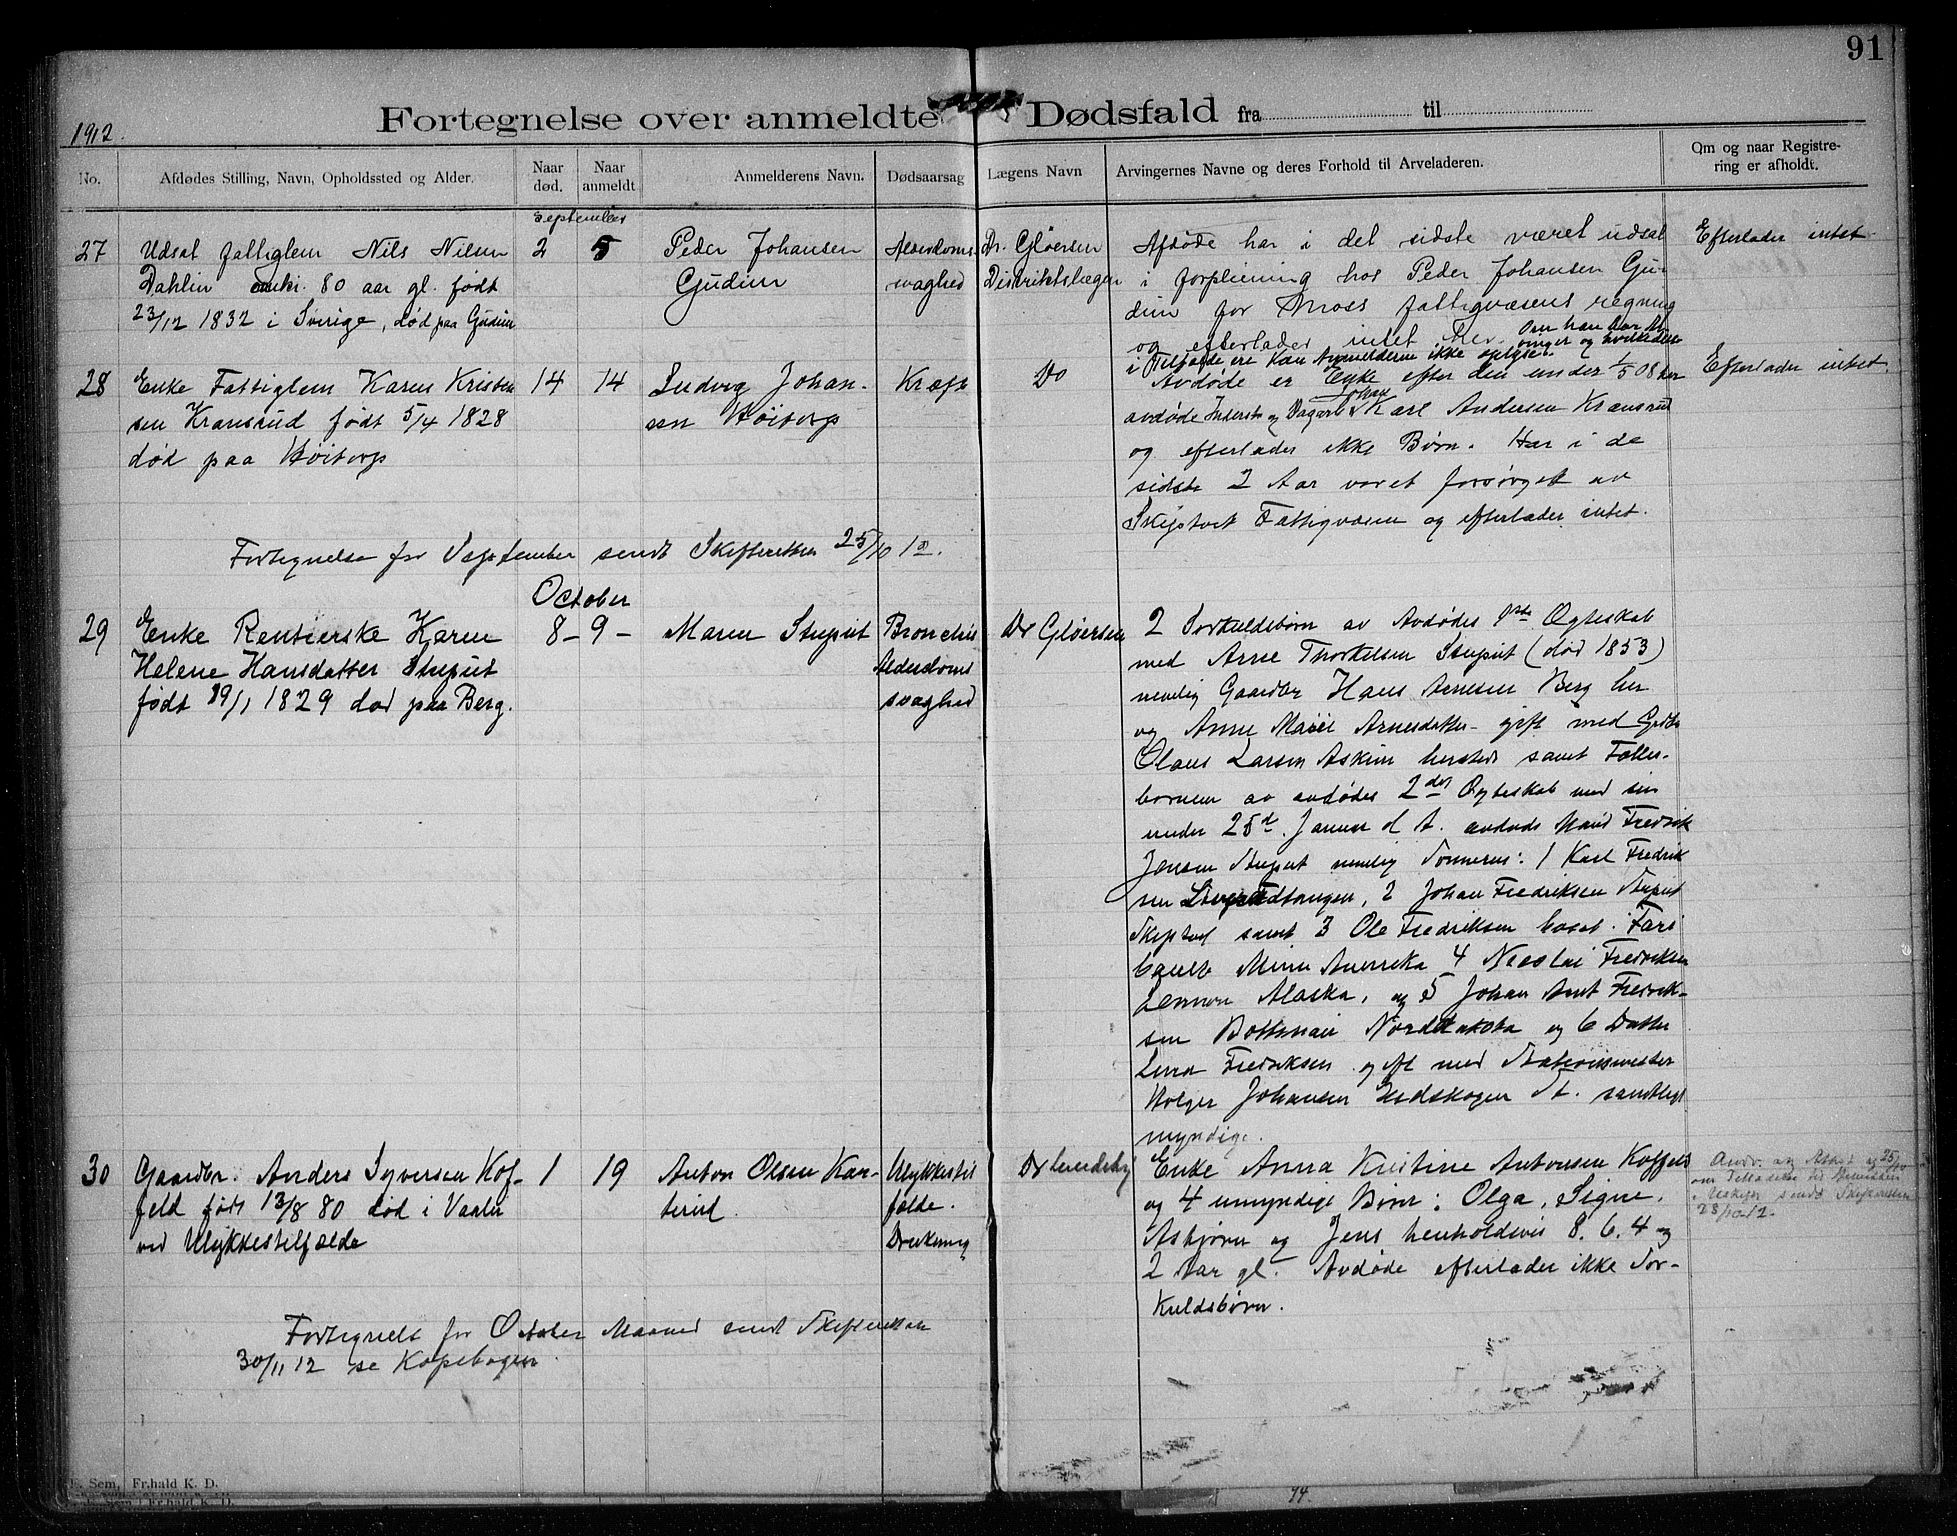 91
1912.
Fortegnelse over anmeldte Dødsfald fra til
No.
Afdødes Stilling, Navn, Opholdssted og Alder.
Naar død.
Naar anmeldt
Anmelderens Navn.
Dødsaarsag
Lægens Navn
Arvingernes Navne og deres Forhold til Arveladeren.
Om og naar Registre-
ring er afholdt.
September
27
Udsat fattiglem Nils Nilsen
Dahlin enki. 80 aar gl. født
23/12 1832 i Sverige, død paa Gudim
2
5
Peder Johansen
Gudim
Alderdoms
svaghed
Dr. Gløersen
Distriktslægen
Afdøde har i det sidste været udsat
i forpleining hos Peder Johansen Gu-
dim for Moss fattigvæsens regning
og efterlader intet. Om han har Ar-
vinger og hvilke disse
i Tilfælde ere kan Anmelderne ikke oplyse.
Efterlader intet
28
Enke Fattiglem Karen Kristen
sen Kransrud født 5/4 1828
død paa Høitorp
14
14
Ludvig Johan-
sen Høitorp
Kræft
Do
Avdøde er Enke efter den under 1/5 08 her
avdøde Inderst og Dagarb. Johan Karl Andersen Kransrud
og efterlader ikke Børn. Har i de
sidste 2 Aar været forsørget av
Skiptvet Fattigvæsen og efterlader intet.
Efterlader intet
Fortegnelse for September sendt Skifteretten 25/10 12.
October
29
Enke Rentierske Karen
Helene Hansdatter Stuput
født 19/1 1829 død paa Berg.
8 - 9 -
Maren Stuput
Bronchis
Alderdoms
svaghed
Dr Gløersen
2 Særkuldsbørn av Avdødes 1ste Ægteskab
med Arne Thorkelsen Stuput (død 1853)
nemlig Gaardbr Hans Arnesen Berg her
og Anne Marie Arnesdatter gift med Grdbr
Olaus Larsen Askim hersteds samt Fælles-
børnene av avdødes 2det Ægteskab med sin
under 25de Januar d A. avdøde Mand Fredrik
Jensen Stuput nemlig Sønnerne: 1 Karl Fredrik
sen tangen, 2 Johan Fredriksen Stuput
Skiptvet samt 3 Ole Fredriksen bosat i Fari
bault Minn Amerika 4 Nicolai Fredriksen
Alaska, og 5 Johan Arnt Fredrik-
sen Norddakota og 6 Datter
Lina Fredriksen gift med Stationsmester
Holger Johansen Eidskogen St. samtlige
myndige.
30
Gaardbr. Anders Syversen Kof-
feld født 13/8 80 død i Vaaler
ved Ulykkestilfælde
1
19
Anton Olsen Kar-
terud.
Ulykkestil
fælde.
Drukning
Dr Lundeby
Enke Anna Kristine Antonsen Koffeld
og 4 umyndige Børn: Olga, Signe,
Asbjørn og Jens henholdsvis 8. 6. 4 og
2 Aar gl. Avdøde efterlader ikke Sær-
kuldsbørn.
om Tilladelse til
i Uskiftet sendt Skifteretten
Fortegnelse for October Maaned sendt Skifteretten
30/11 12 se Kopebogen.
E. Sem, Fr.hald K. D.
E. Sem, Fr.hald K. D.
94.